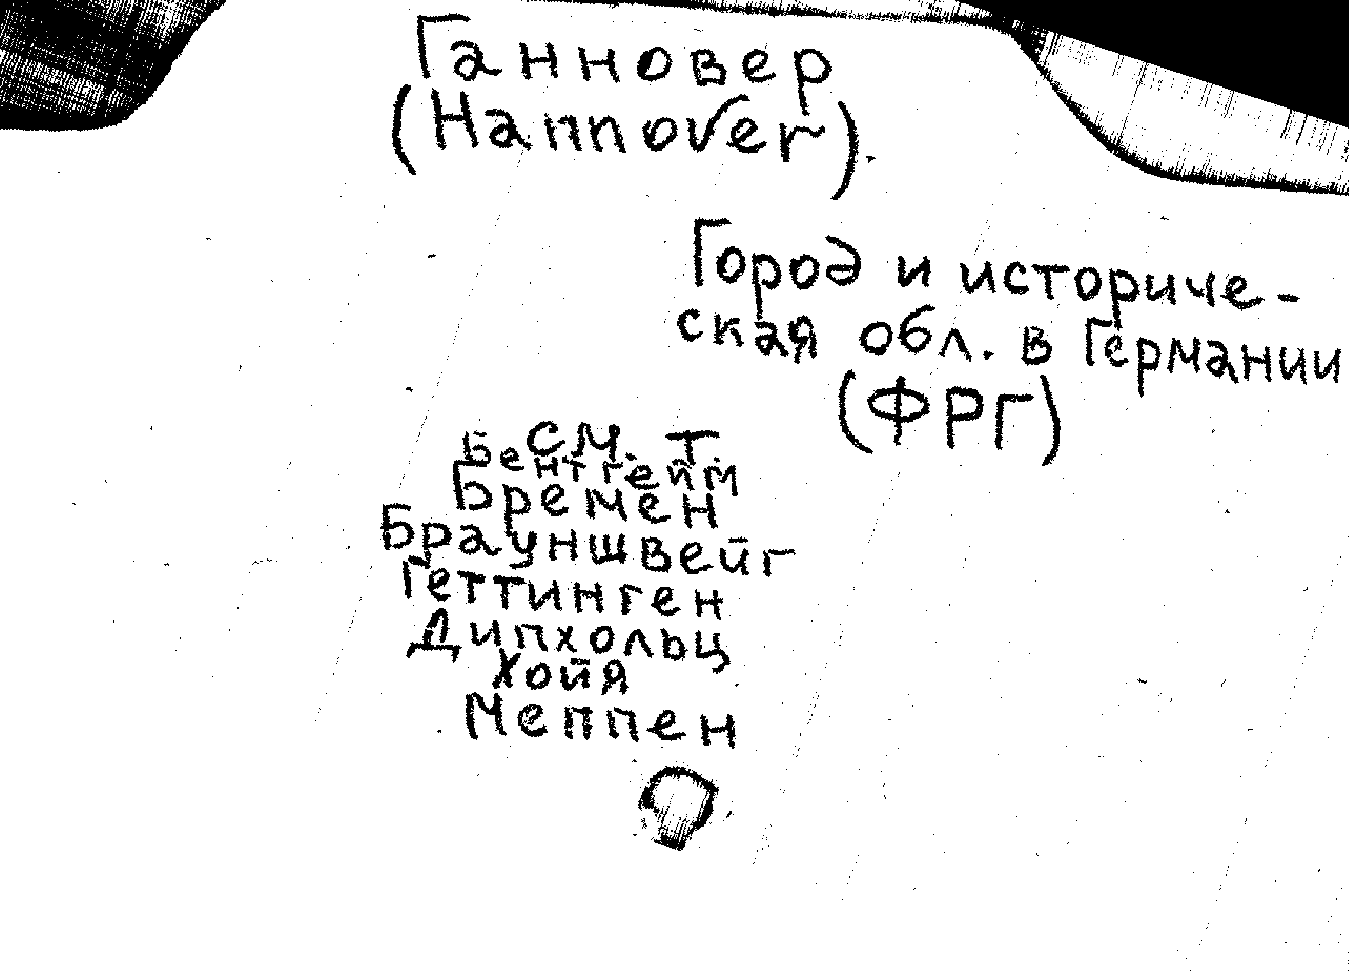 Ганновер
(Hannover)
Город и историче-
ская обл. в Германии
(ФРГ)
см. т.
Бентгейм
Бремен
Брауншвейг
Геттинген
Дипхольц
Хойя
Меппен